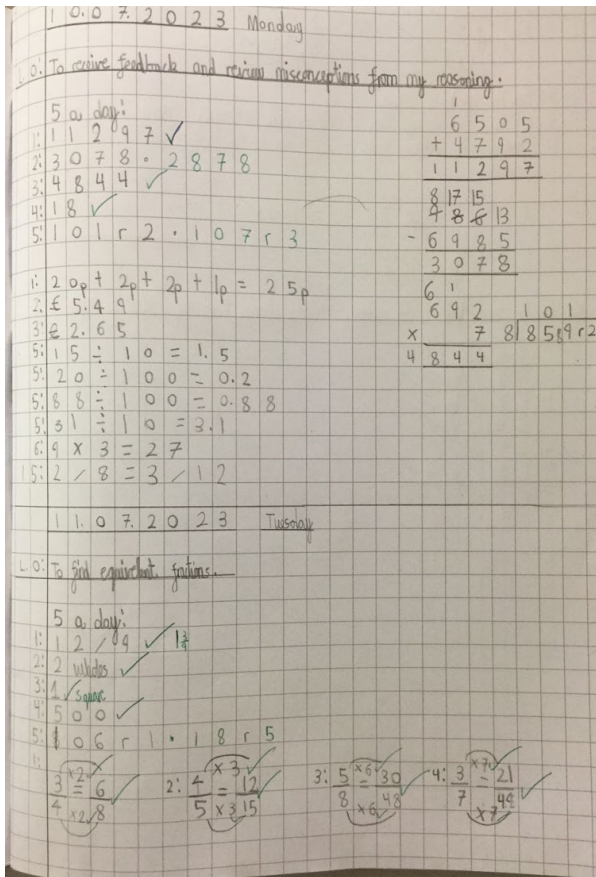 10.07.2023 Monday
L.O: To receive feedback and review misconceptions from my reasoning.
5 a day:
1: 11297 ✓
2: 3078 . 2878
3: 4844 ✓
4: 18 ✓
5: 101 r 2 . 107 r 3
1
6505
+ 4792
11297
8 17 15
9 8 6 13
- 6985
3078
6 1
692
x 7
4844
101
8 8589 r2
1: 20p + 2p + 2p + 1p = 25p
2. £5.49
3: £2.65
5: 15 ÷ 10 = 1.5
5: 20 ÷ 100 = 0.2
5: 88 ÷ 100 = 0.88
5: 31 ÷ 10 = 3.1
6: 9 x 3 = 27
15: 2/8 = 3/12
11.07.2023 Tuesday
L.O: To find equivelent fractions.
5 a day:
1: 12/9 ✓ 1 3/9
2: 2 wholes ✓
3: 1 ✓ square
4: 500 ✓
5: 106 r 1 . 18 r 5
1: 3/4 = 6/8 x2 x2 ✓
2: 4/5 = 12/15 x3 x3 ✓
3: 5/8 = 30/48 x6 x6 ✓
4: 3/7 = 21/49 x7 x7 ✓